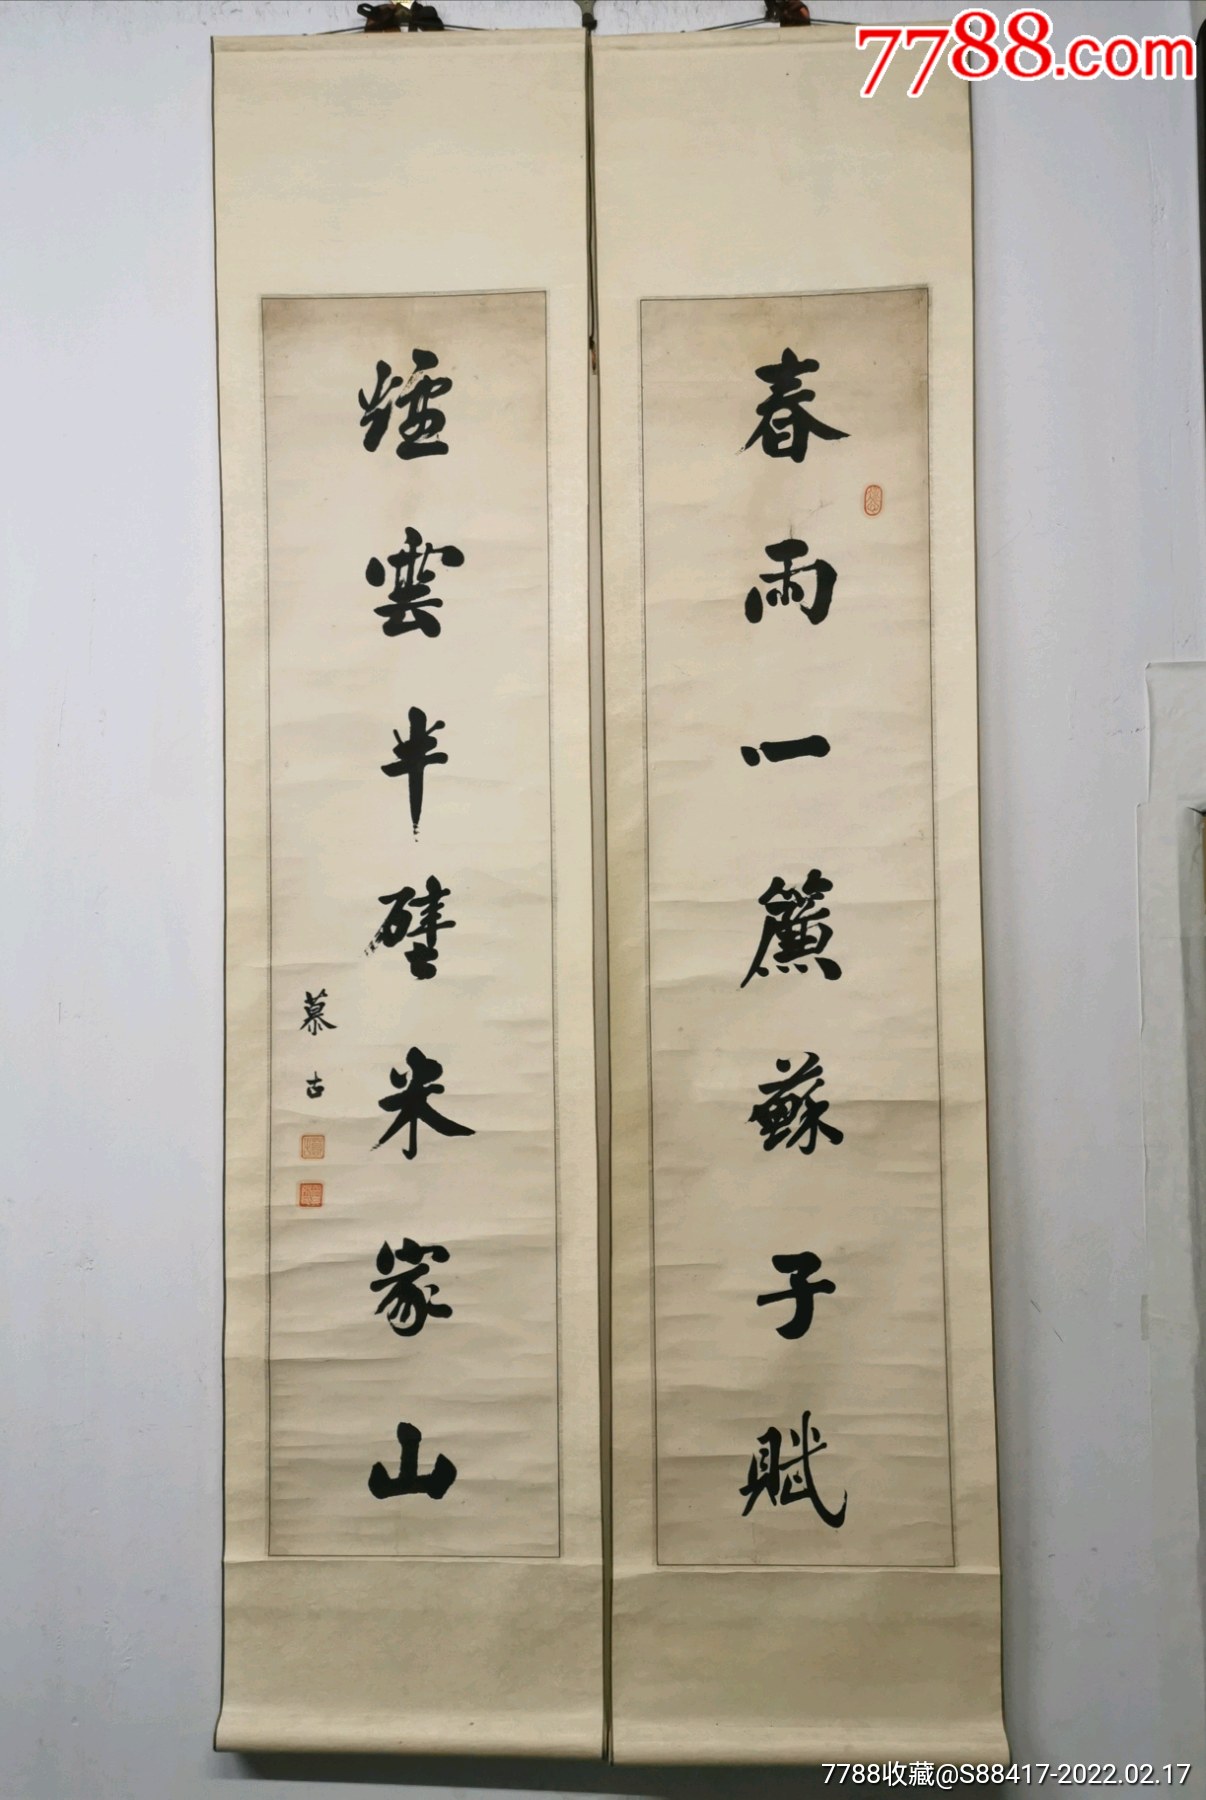 7788.com
春雨一簾蘇子賦
爐雲半壁米家山
慕古
7788收藏@S88417-2022.02.17